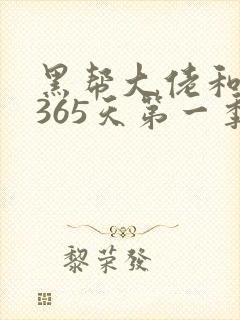 黑帮大佬和
365天第一季
黎荣發